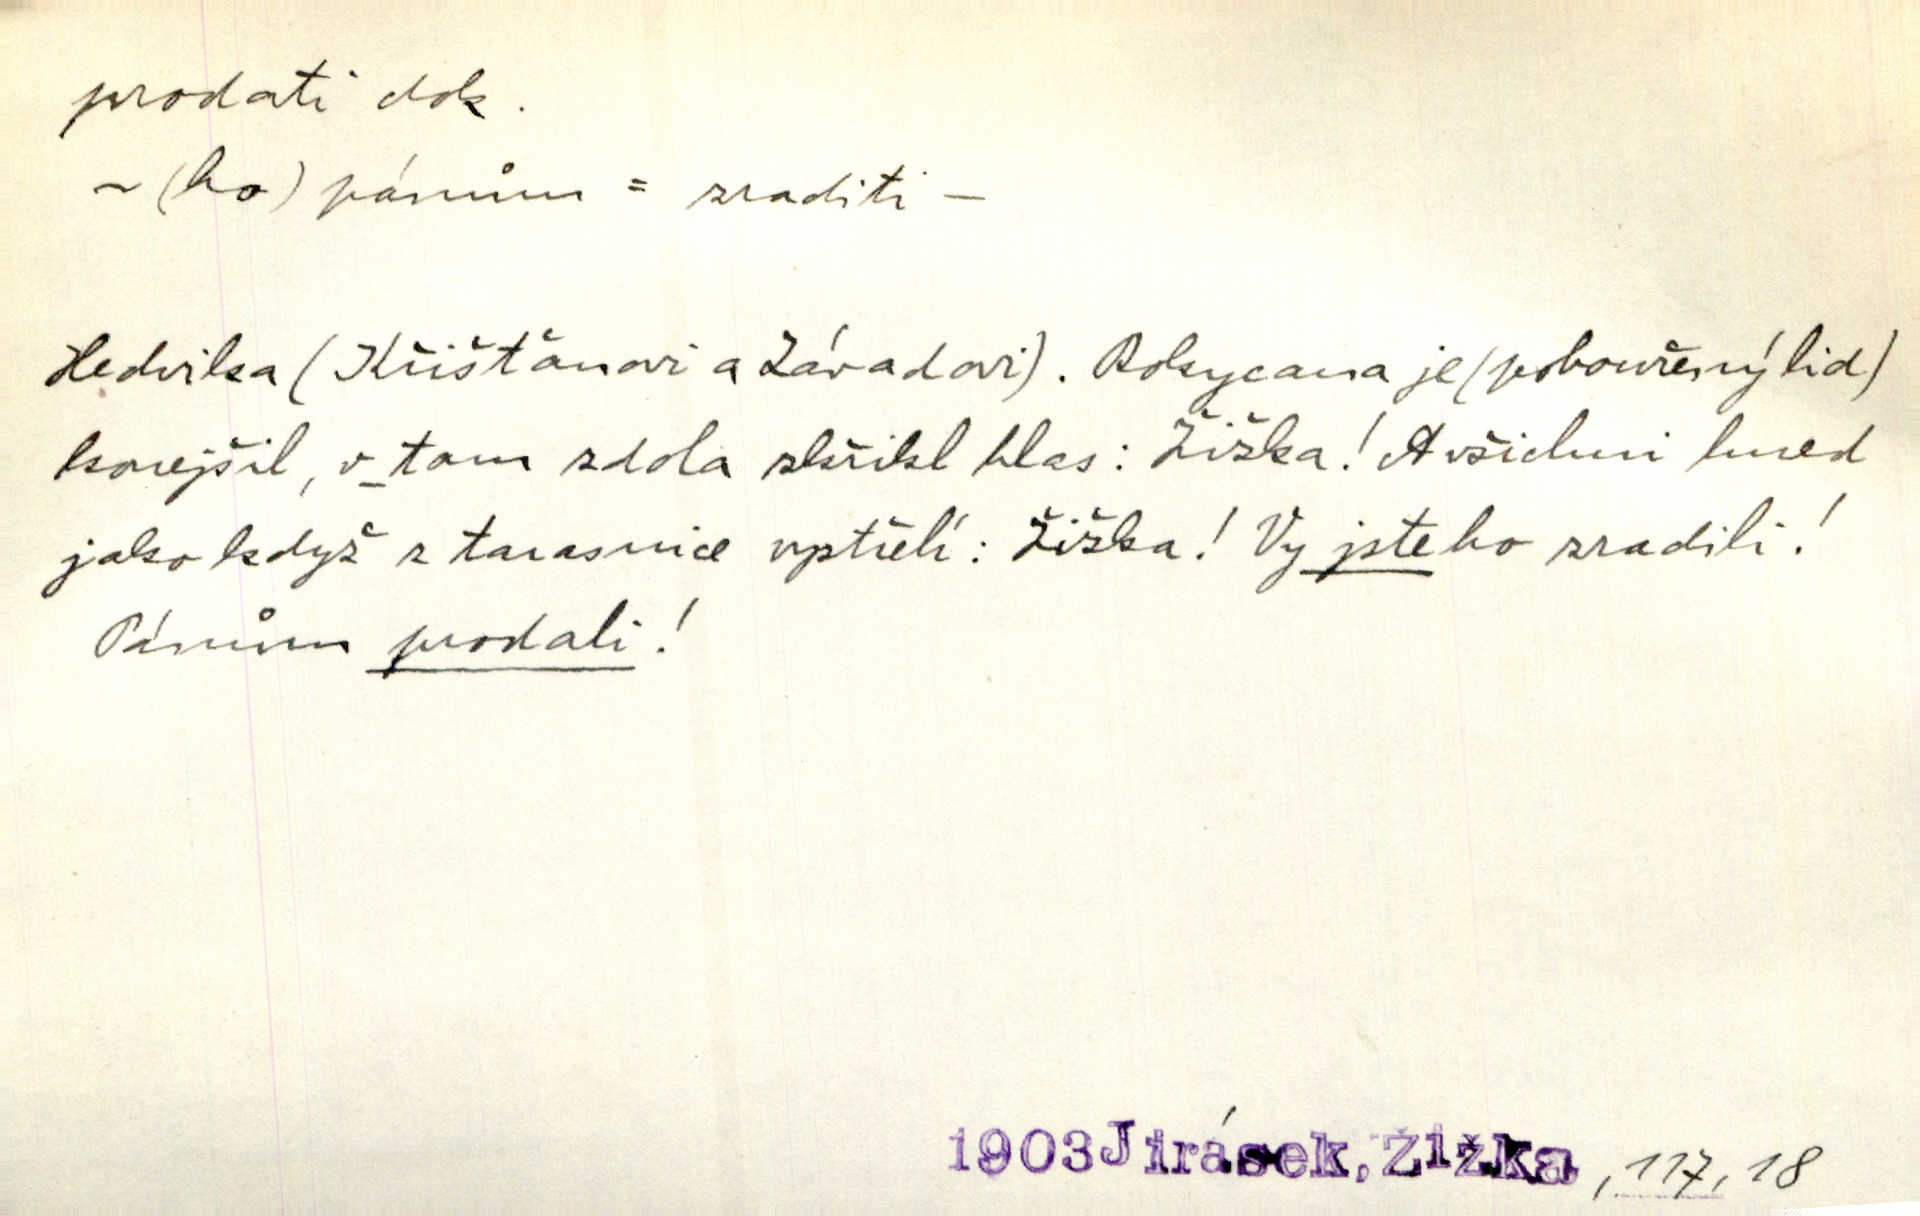 prodati dok.
~ (ho) pánům = zraditi —
Hedvika (Křišťanovi a Závadovi). Rokycana je (pobouřený lid)
konejšil, v_tom zdola zkřikl hlas: Žižka! A všichni hned
jako když z tarasnice vystřelí: Žižka! Vy jste ho zradili!
Pánům prodali!
1903 Jirásek, Žižka, 117, 18